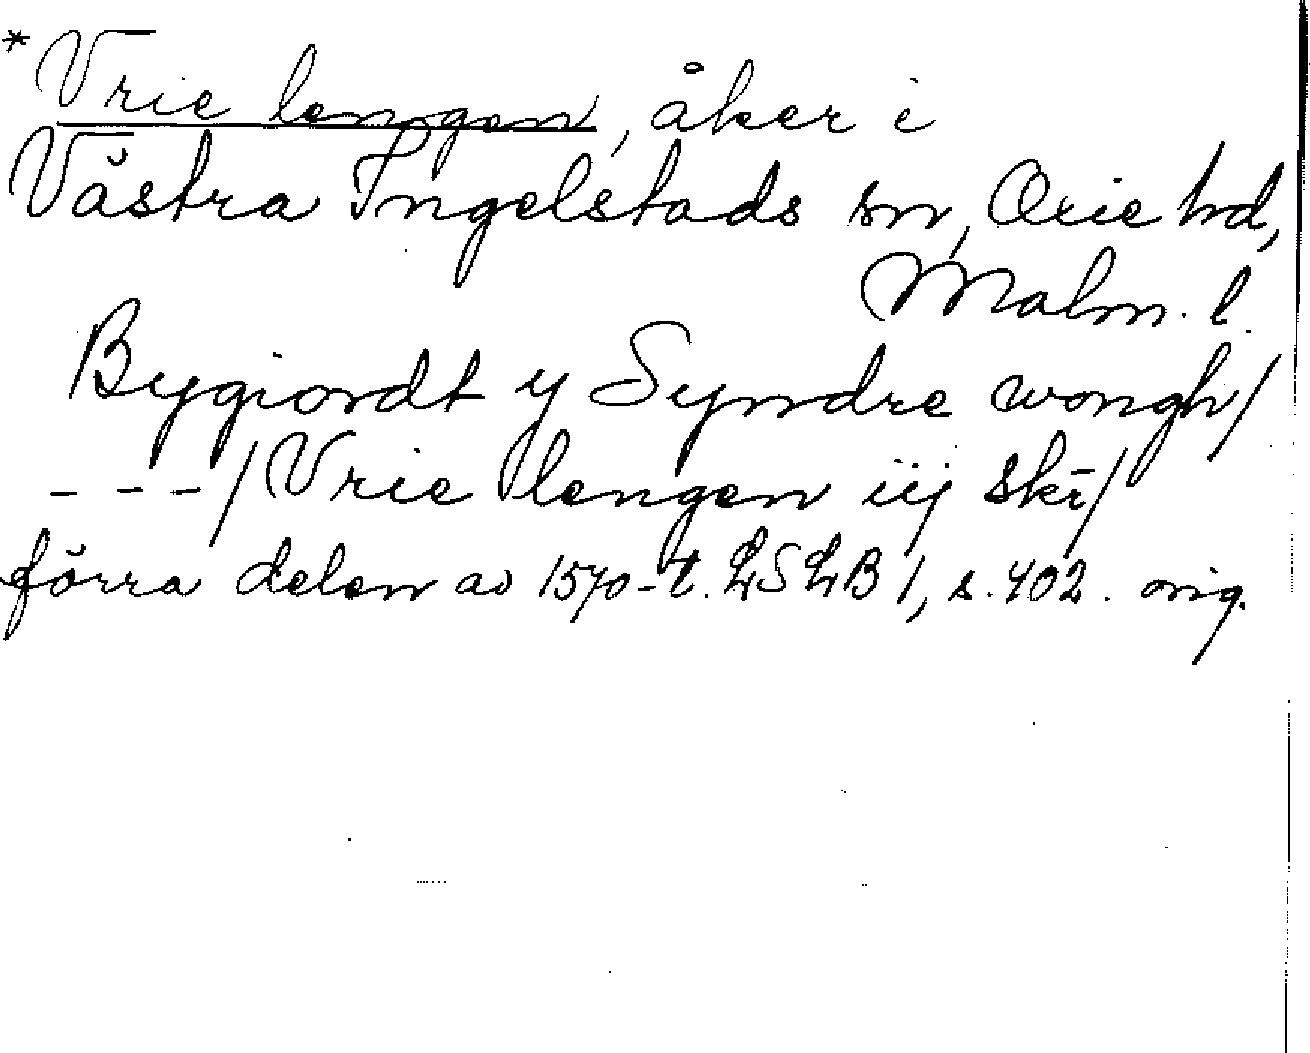 *Vrie lengen, åker i
Västra Ingelstads sn, Oxie hd,
Malm. l.
Bygiordt y Syndre wongh/
---/Vrie lengen iij skr̄/
förra delen av 1570-t. LSLB 1, s. 402. orig.